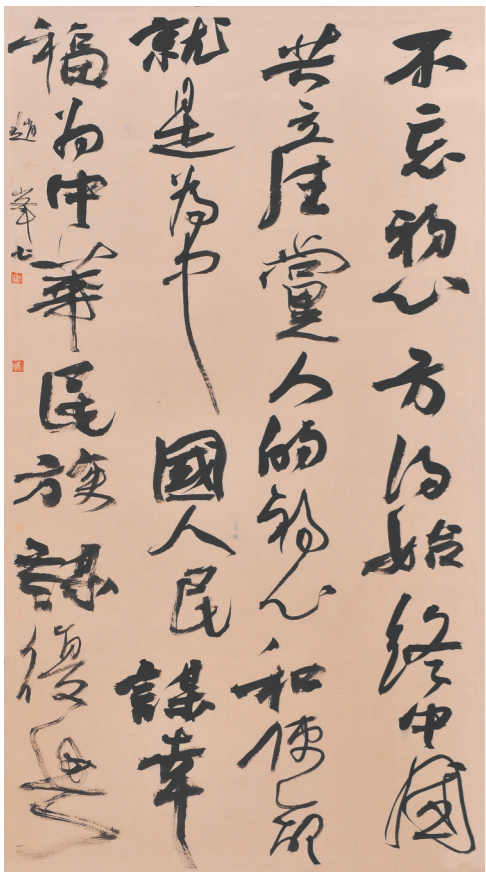 不忘初心方得始終中國
共產黨人的初心和使命
就是為中國人民謀幸
福为中華民族謀復興
趙峯